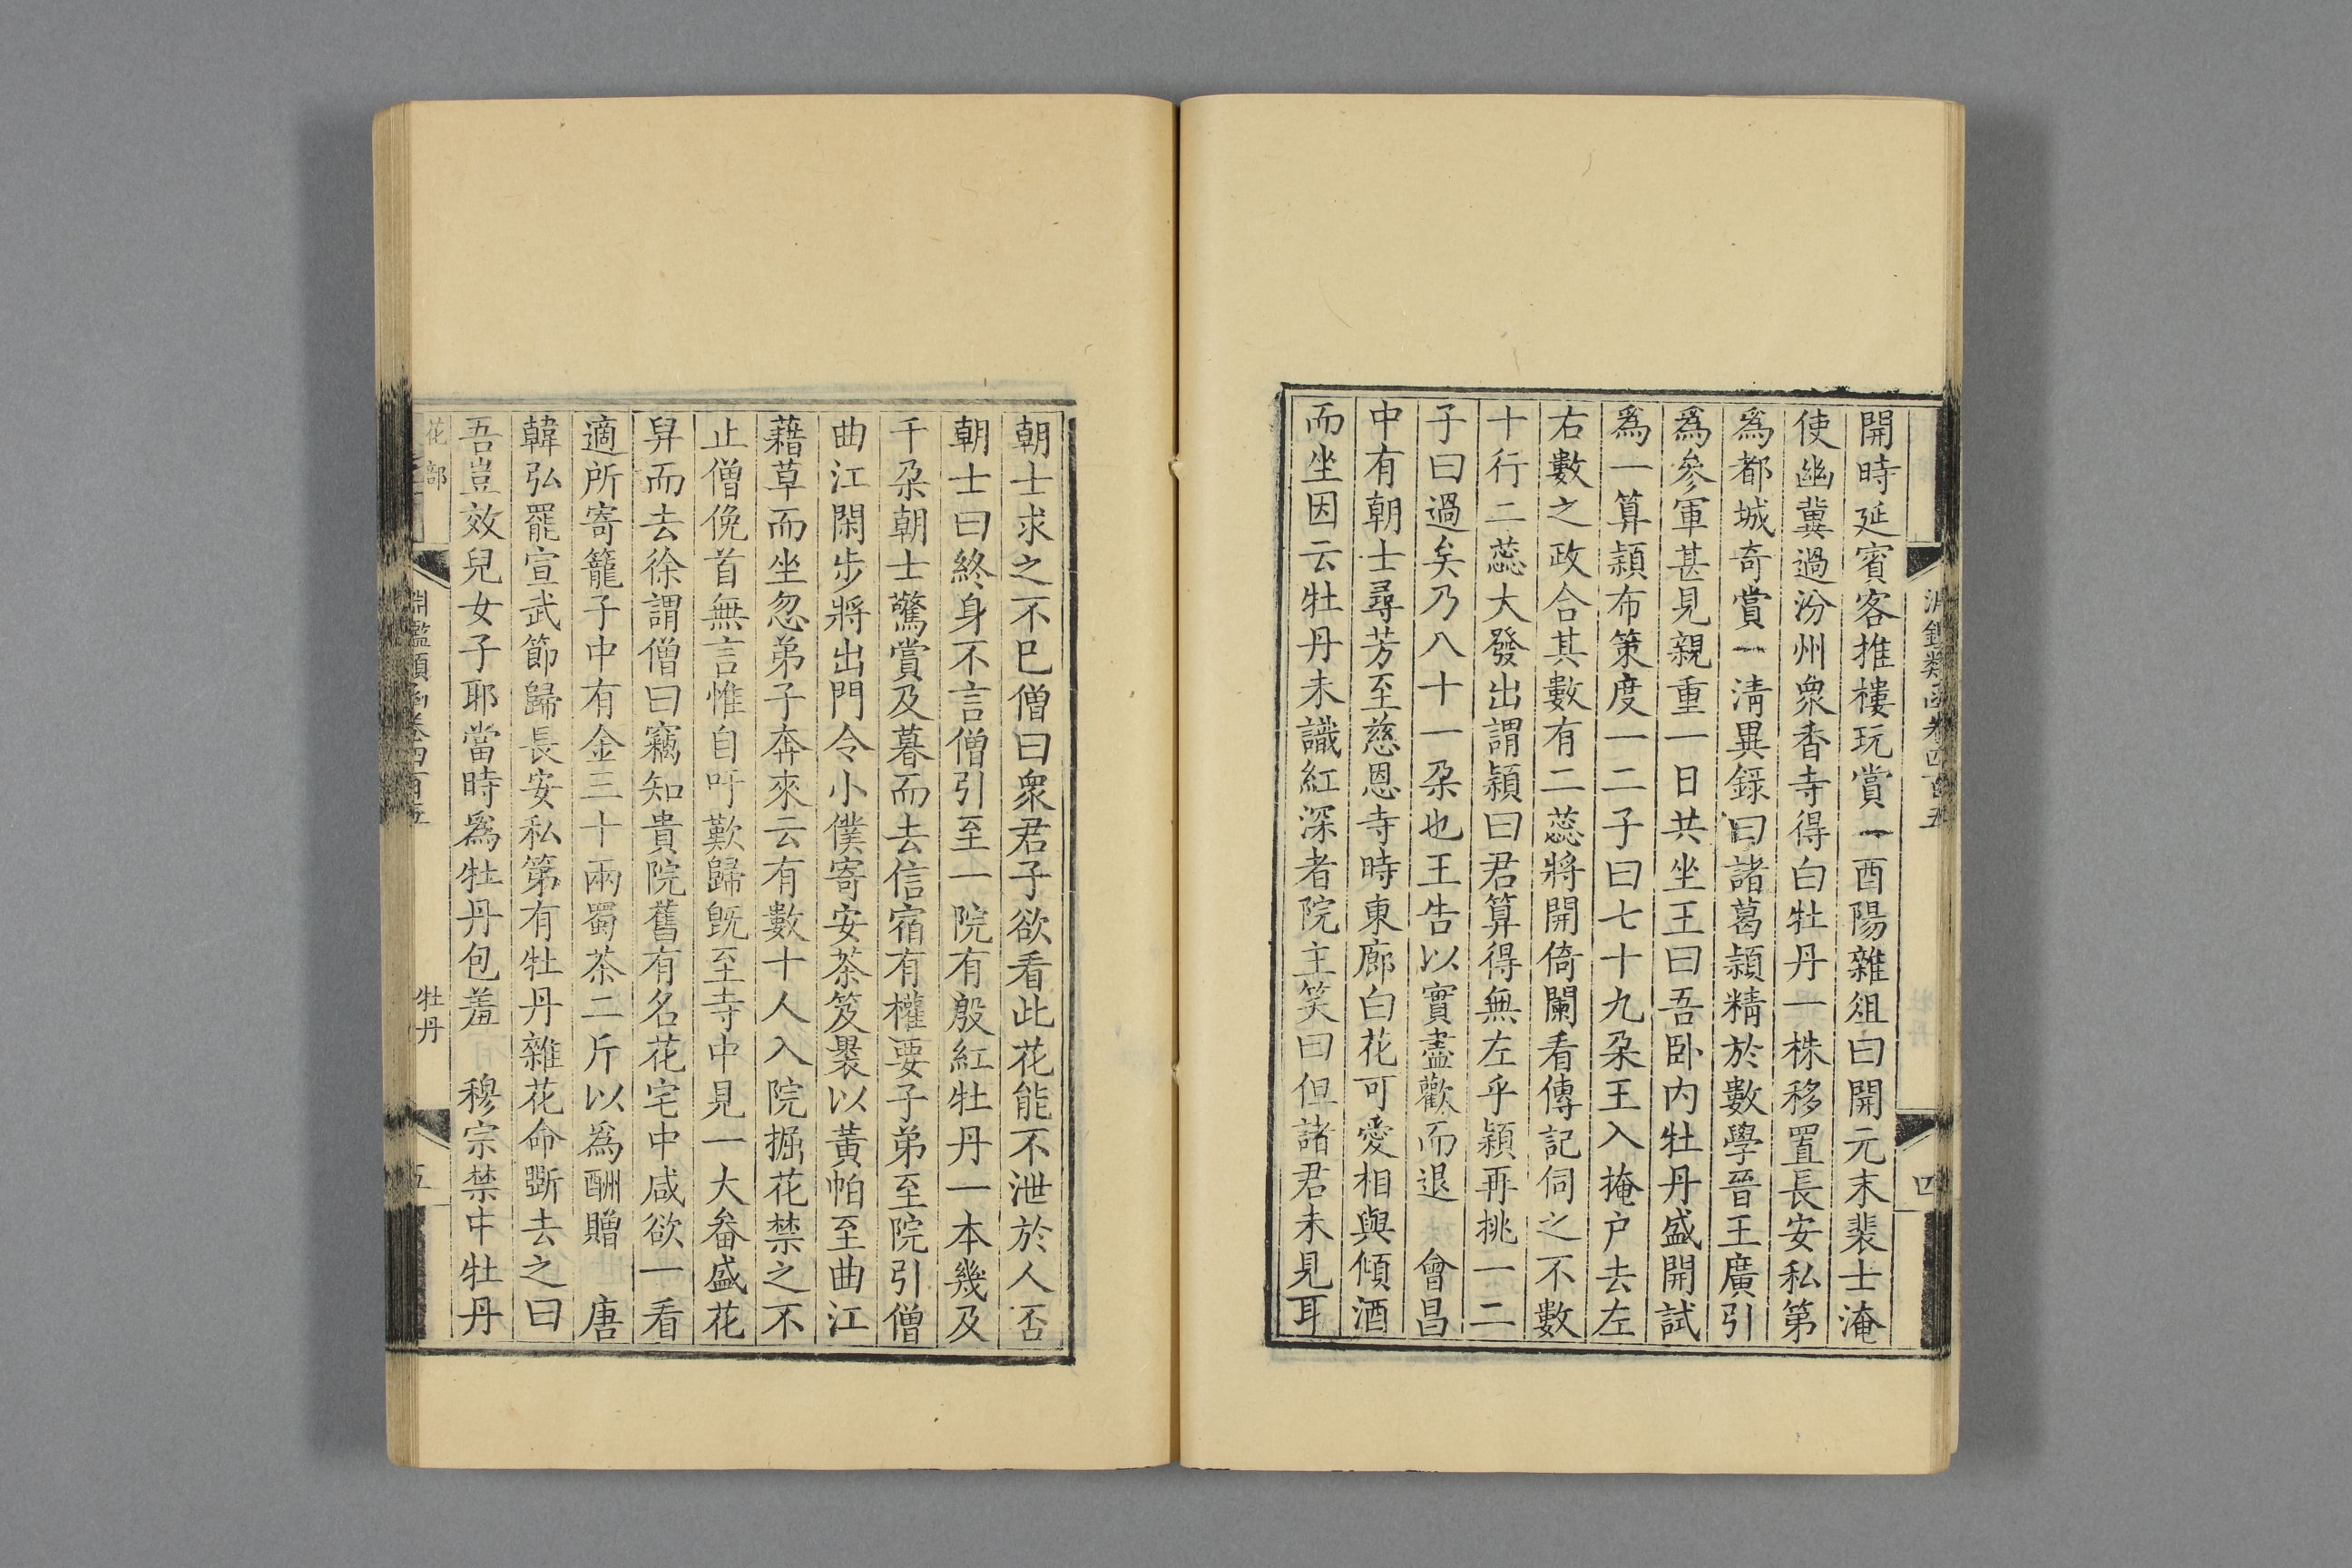 開時延賓客推樓玩賞一酉陽雜俎曰開元末裴士淹
使幽冀過汾州衆香寺得白牡丹一株移置長安私第
爲都城奇賞一淸異錄曰諸葛潁精於數學晉王廣引
爲參軍甚見親重一日共坐王曰吾卧內牡丹盛開試
爲一算潁布策度一二子曰七十九朶王入掩户去左
右數之政合其數有二蕊將開倚闌看傳記伺之不數
十行二蕊大發出謂潁曰君算得無左乎潁再挑一二
子曰過矣乃八十一朶也王告以實盡歡而退 會昌
中有朝士尋芳至慈恩寺時東廊白花可愛相與傾酒
而坐因云牡丹未識紅深者院主笑曰但諸君未見耳
四
朝士求之不已僧曰衆君子欲看此花能不泄於人否
朝士曰終身不言僧引至一院有殷紅牡丹一本幾及
千朶朝士驚賞及暮而去信宿有權要子弟至院引僧
曲江閑步將出門令小僕寄安茶笈裹以黃帕至曲江
藉草而坐忽弟子奔來云有數十人入院掘花禁之不
止僧俛首無言惟自吁歎歸旣至寺中見一大畚盛花
舁而去徐謂僧曰竊知貴院舊有名花宅中咸欲一看
適所寄籠子中有金三十兩蜀茶二斤以爲酬贈 唐
韓弘罷宣武節歸長安私第有牡丹雜花命斸去之曰
吾豈效兒女子耶當時爲牡丹包羞 穆宗禁中牡丹
花部
淵鑑類函卷四百五
牡丹
五